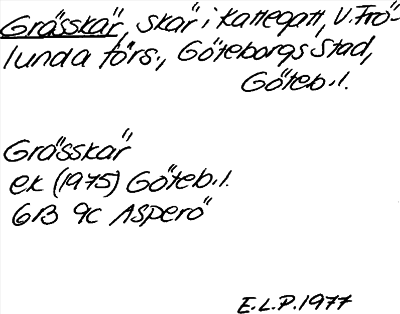 Grässkär, skär i Kattegatt, V. Frö-
lunda förs., Göteborgs Stad,
Göteb. l.
Grässkär
ek (1975) Göteb. l.
6B 9c Asperö
E.L.P. 1977